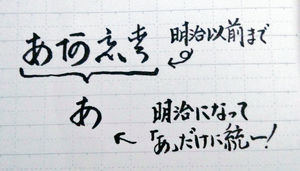 あ阿惡愛
明治以前まで
あ
明治になって
「あ」だけに統一!